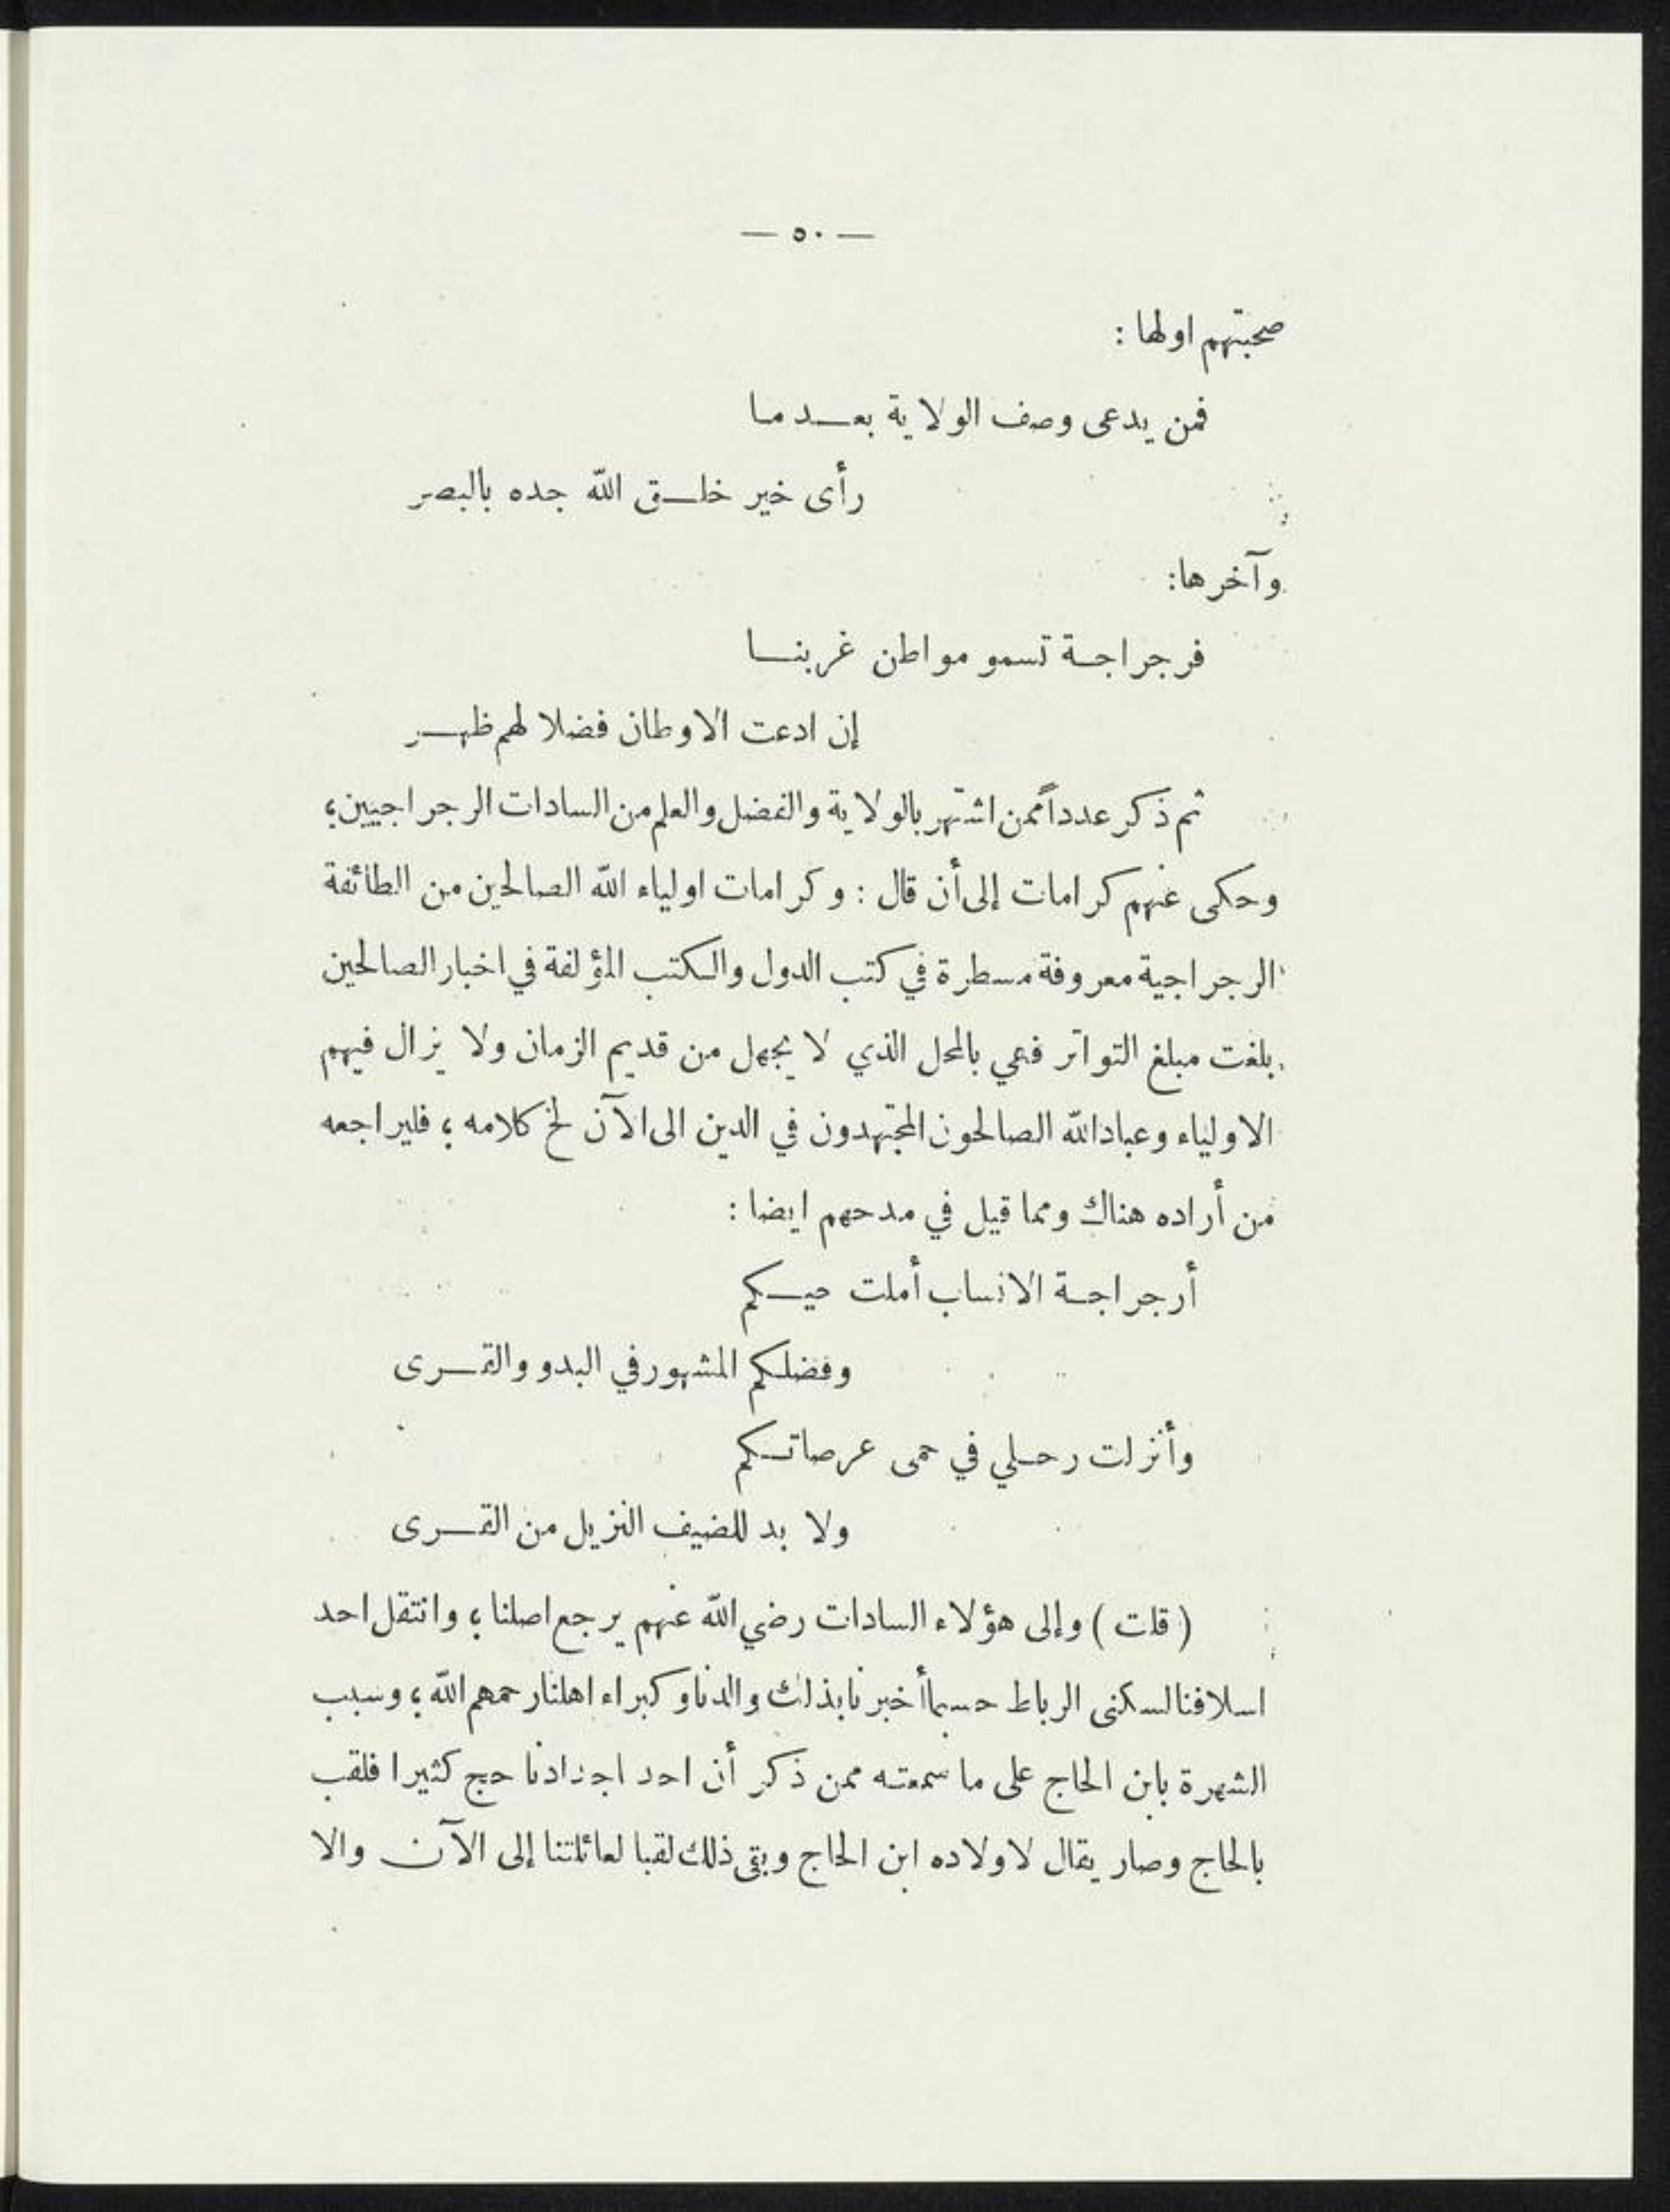 — ٥٠ —
صحبتهم اولها :
فمن يدعى وصف الولاية بعدما
رأى خير خلق الله جده بالبصر
وآخرها:
فرجراجة تسمو مواطن غربنا
إن ادعت الاوطان فضلا لهم ظهر
ثم ذكر عدداً ممن اشتهر بالولاية والفضل والعلم من السادات الرجراجيين؛
وحكى عنهم كرامات إلى أن قال : وكرامات اولياء الله الصالحين من الطائفة
الرجراجية معروفة مسطرة في كتب الدول والكتب المؤلفة في اخبار الصالحين
بلغت مبلغ التواتر فهي بالمحل الذي لا يجهل من قديم الزمان ولا يزال فيهم
الاولياء وعباد الله الصالحون المجتهدون في الدين الى الآن لخ كلامه ؛ فليراجعه
من أراده هناك ومما قيل في مدحهم ايضا :
أرجراجة الانساب أملت حيكم
وفضلكم المشهور في البدو والقرى
وأنزلت رحلي في حمى عرصاتكم
ولا بد للضيف النزيل من القرى
( قلت ) وإلى هؤلاء السادات رضي الله عنهم يرجع اصلنا ؛ وانتقل احد
اسلافنا لسكنى الرباط حسبما أخبرنا بذلك والدنا وكبراء اهلنا رحمهم الله ؛ وسبب
الشهرة بابن الحاج على ما سمعته ممن ذكر أن احد اجدادنا حج كثيرا فلقب
بالحاج وصار يقال لاولاده ابن الحاج وبقى ذلك لقبا لعائلتنا إلى الآن والا